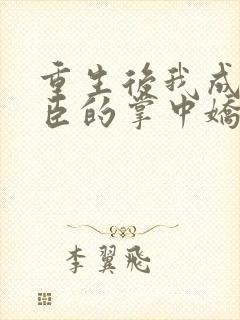 重生後我成
臣的掌中嬌
李翼飛